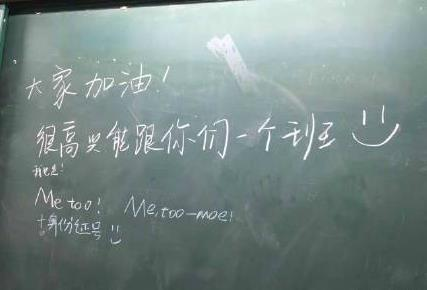 大家加油!
很高兴能跟你们一个班 :)
我也是!
Me too! Me, too-moe!
+身份证号 :)